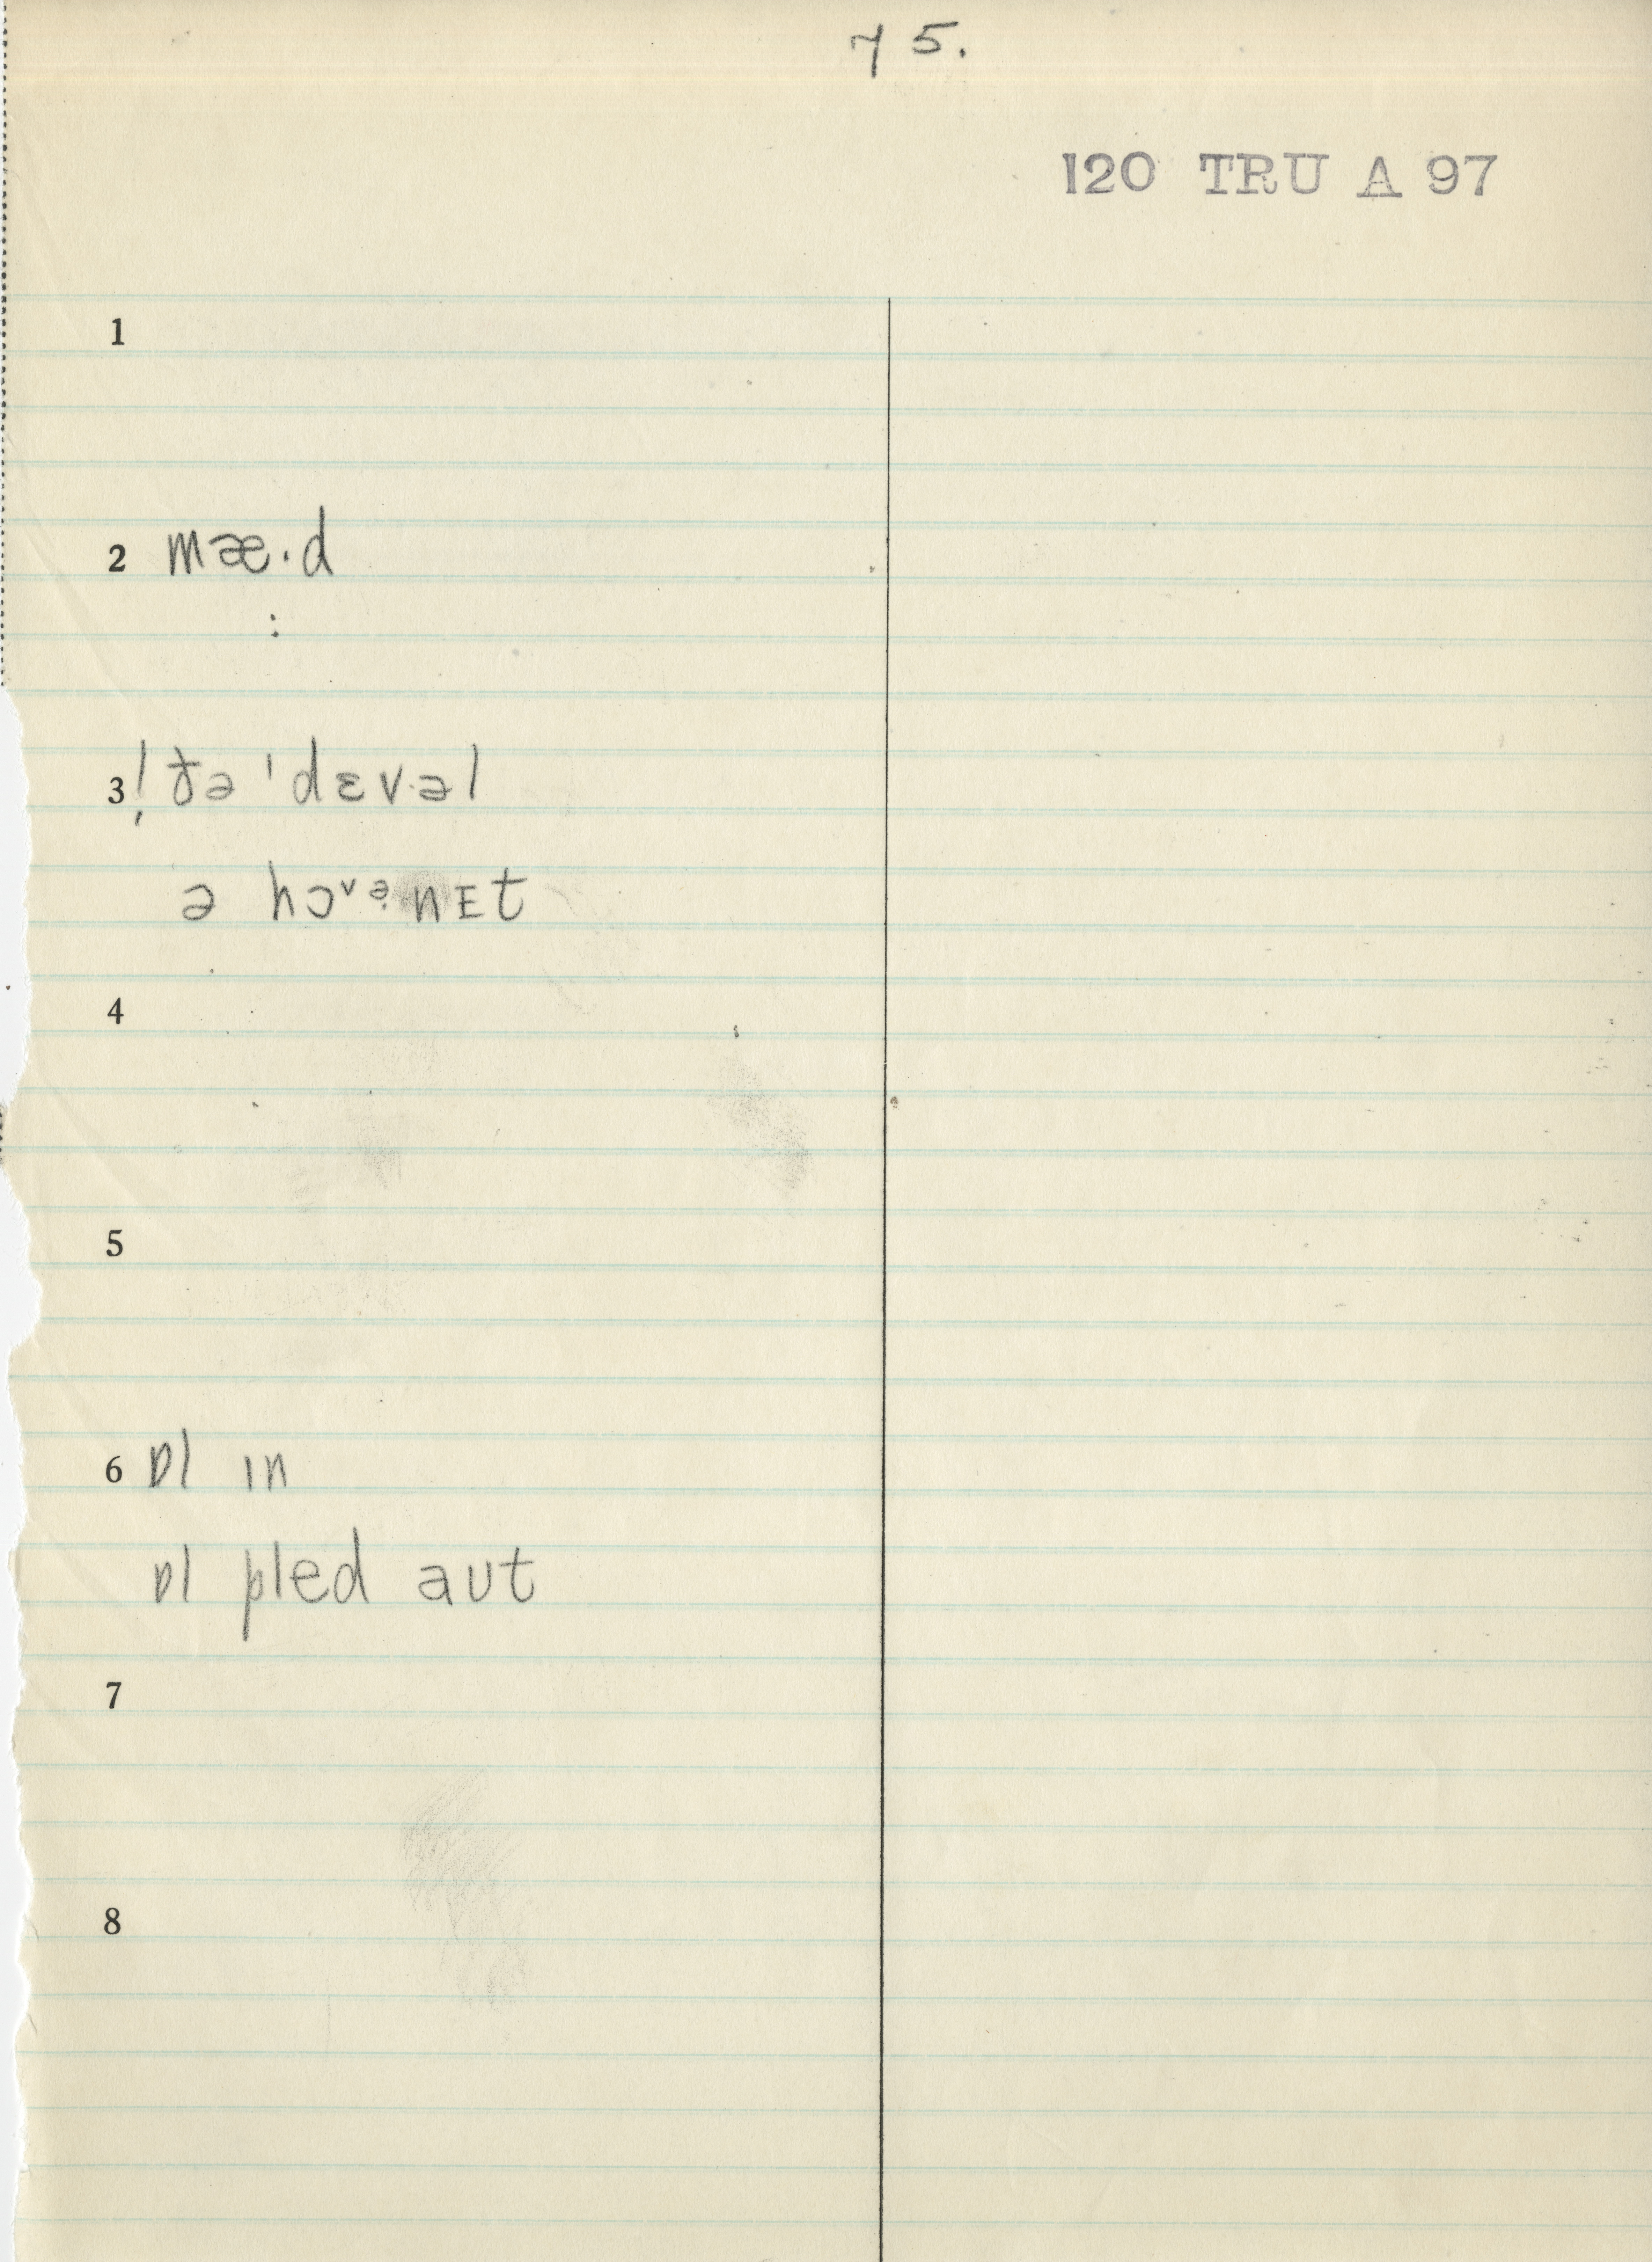 75.
120 TRU A 97
1
2 mæ·d
:
3 ! ðə ˈdɛvəl
ə hɔᵛə̣nᴇt
4
5
6 ɒl ɪn
ɒl pled aʊt
7
8